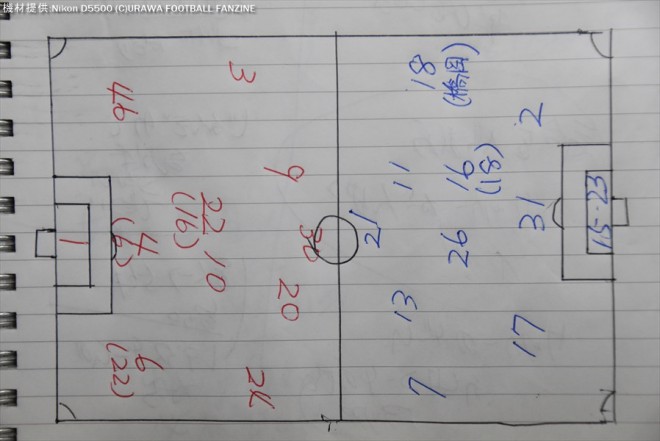 機材提供:Nikon D5500 (C)URAWA FOOTBALL FANZINE
3
46
9
22
(16)
4
(6)
1
30
10
20
6
(22)
24
18
(橋岡)
2
11
16
(18)
21
26
31
15-23
13
17
7